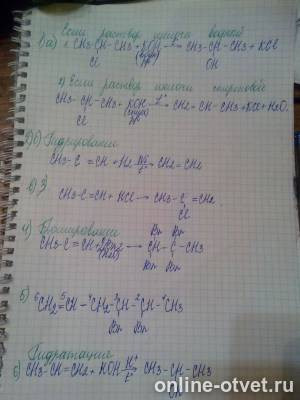 Если раствор щелочи водный
1) а) 1. CH3-CH-CH3 + KOH → CH3-CH-CH3 + KCl
Cl (водн. р-р) OH
2) Если раствор щелочи спиртовой
CH3-CH-CH3 + KOH t° → CH2=CH-CH3 + KCl + H2O.
Cl (спирт. р-р)
Гидрирование
CH3-C≡CH + H2 Ni t° → CH2=CH2
CH3-C≡CH + HCl → CH3-C=CH2
Cl
4) Бромирование
Br Br
CH3-C≡CH + 2Br2 → CH-C-CH3
(H2O) Br Br
5) ⁶CH2=⁵CH-⁴CH2-³CH-²CH-¹CH3
Br Br
Гидратация
6) CH3-CH=CH2 + HOH H⁺ t° → CH3-CH-CH3
OH
online-otvet.ru